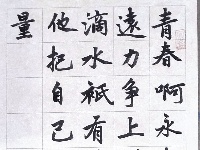 青春啊永
遠力争上
滴水衹有
他把自己
量